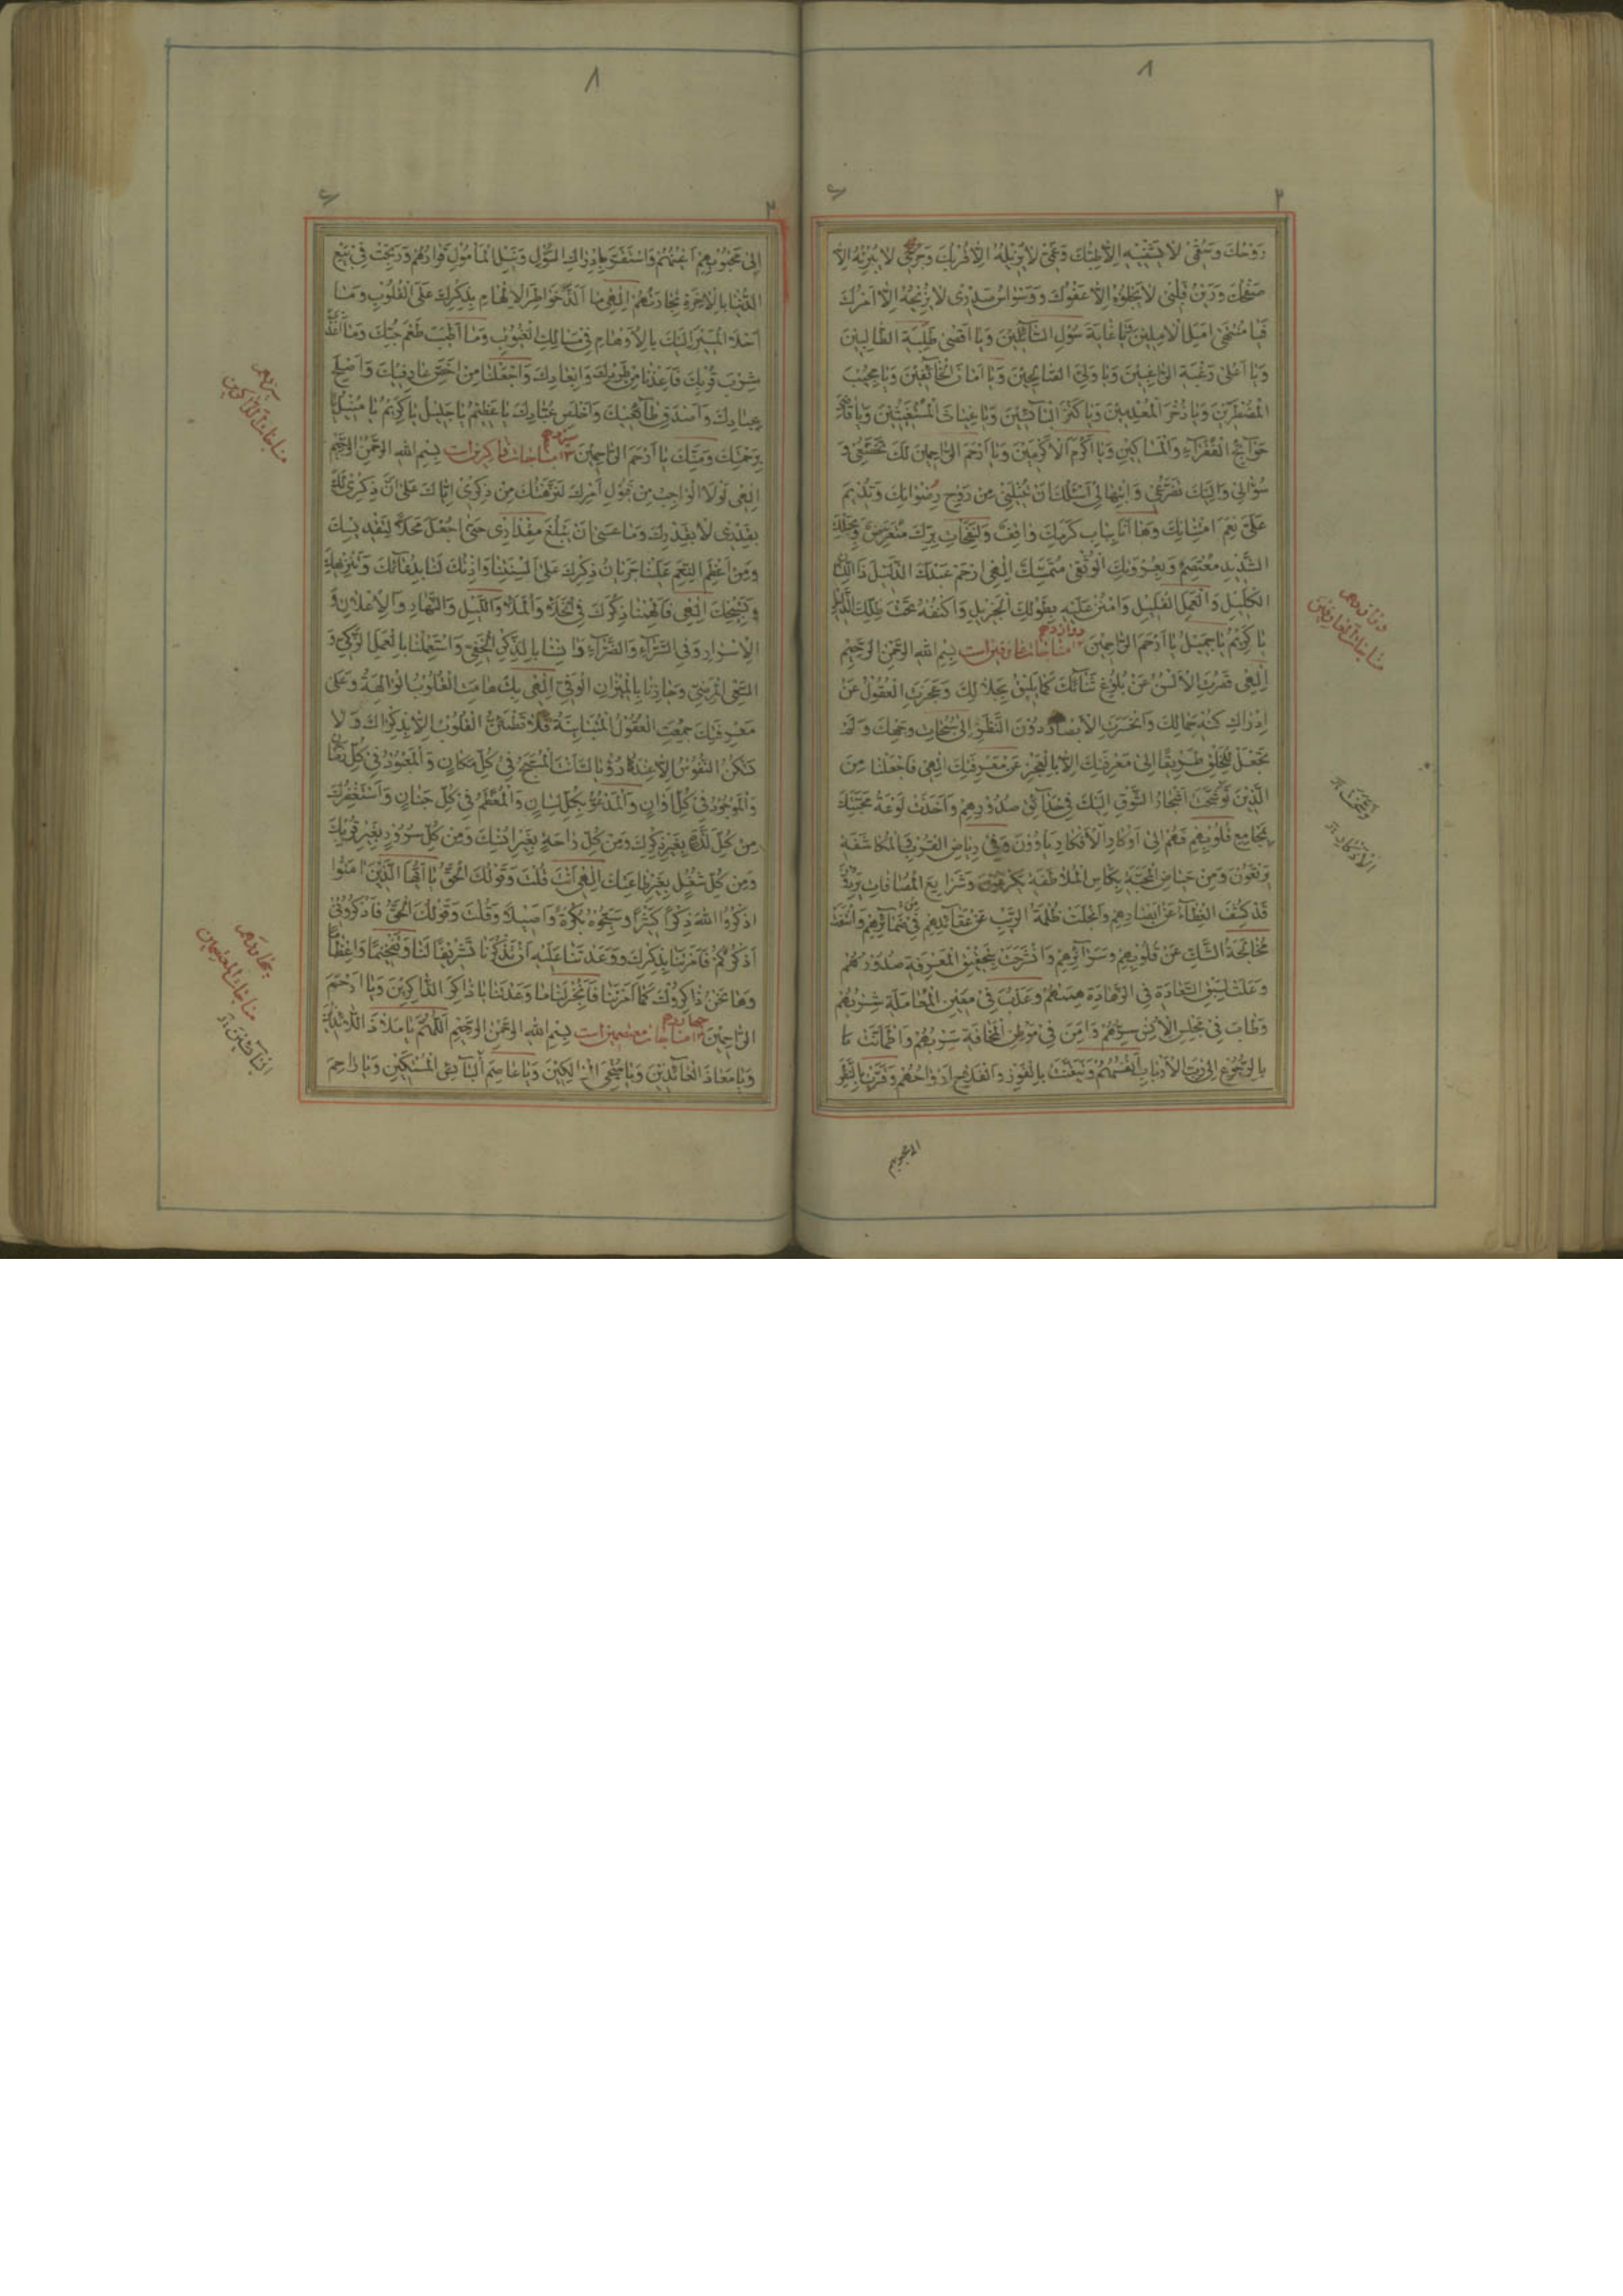 ٨
٢
رَوْحُكَ وَسُقْمِی لٰا یَشْفیهِ اِلّٰا طِبُّكَ وَغَمّی لٰا یُزیلُهُ اِلّٰا قُرْبُكَ وَجُرْحی لٰا یُبْرِئُهُ اِلّٰا
صَفْحُكَ وَرَیْنُ قَلْبی لٰا یَجْلُوهُ اِلّٰا عَفْوُكَ وَوَسْوٰاسُ صَدْری لٰا یُزیحُهُ اِلّٰا اَمْرُكَ
فَیٰا مُنْتَهیٰ اَمَلِ الْاٰمِلینَ وَیٰا غٰایَةَ سُؤْلِ السّٰآئِلینَ وَیٰا اَقْصیٰ طَلِبَةِ الطّٰالِبینَ
وَیٰا اَعْلیٰ رَغْبَةِ الرّٰاغِبینَ وَیٰا وَلِیَّ الصّٰالِحینَ وَیٰا اَمٰانَ الْخٰآئِفینَ وَیٰا مُجیبَ
الْمُضْطَرّینَ وَیٰا ذُخْرَ الْمُعْدِمینَ وَیٰا كَنْزَ الْبٰآئِسینَ وَیٰا غِیٰاثَ الْمُسْتَغیثینَ وَیٰا قٰاضِیَ
حَوٰآئِجِ الْفُقَرٰآءِ وَالْمَسٰاكینِ وَیٰا اَكْرَمَ الْاَكْرَمینَ وَیٰا اَرْحَمَ الرّٰاحِمینَ لَكَ تَخَضُّعی وَ
سُؤٰالی وَاِلَیْكَ تَضَرُّعی وَابْتِهٰالی اَسْئَلُكَ اَنْ تُنیلَنی مِنْ رَوْحِ رِضْوٰانِكَ وَتُدیمَ
عَلَیَّ نِعَمَ امْتِنٰانِكَ وَهٰا اَنَا بِبٰابِ كَرَمِكَ وٰاقِفٌ وَلِنَفَحٰاتِ بِرِّكَ مُتَعَرِّضٌ وَبِحَبْلِكَ
الشَّدیدِ مُعْتَصِمٌ وَبِعُرْوَتِكَ الْوُثْقیٰ مُتَمَسِّكٌ اِلٰهی اِرْحَمْ عَبْدَكَ الذَّلیلَ ذَا اللِّسٰانِ
الْكَلیلِ وَالْعَمَلِ الْقَلیلِ وَامْنُنْ عَلَیْهِ بِطَوْلِكَ الْجَزیلِ وَاكْنُفْهُ تَحْتَ ظِلِّكَ الظَّلیلِ
یٰا كَریمُ یٰا جَمیلُ یٰا اَرْحَمَ الرّٰاحِمینَ ١٢ مناجات عارفین است بِسْمِ اللهِ الرَّحْمٰنِ الرَّحیمِ
دوازدهم
اِلٰهی قَصُرَتِ الْاَلْسُنُ عَنْ بُلُوغِ ثَنٰآئِكَ كَمٰا یَلیقُ بِجَلٰالِكَ وَعَجَزَتِ الْعُقُولُ عَنْ
اِدْرٰاكِ كُنْهِ جَمٰالِكَ وَانْحَسَرَتِ الْاَبْصٰارُ دُونَ النَّظَرِ اِلیٰ سُبُحٰاتِ وَجْهِكَ وَلَمْ
تَجْعَلْ لِلْخَلْقِ طَریقًا اِلیٰ مَعْرِفَتِكَ اِلّٰا بِالْعَجْزِ عَنْ مَعْرِفَتِكَ اِلٰهی فَاجْعَلْنٰا مِنَ
الَّذینَ تَوَشَّحَتْ اَشْجٰارُ الشَّوْقِ اِلَیْكَ فی حَدٰآئِقِ صُدُورِهِمْ وَاَخَذَتْ لَوْعَةُ مَحَبَّتِكَ
بِمَجٰامِعِ قُلُوبِهِمْ فَهُمْ اِلیٰ اَوْكٰارِ الْاَفْكٰارِ یَأْوُونَ وَفی رِیٰاضِ الْقُرْبِ وَالْمُكٰاشَفَةِ
یَرْتَعُونَ وَمِنْ حِیٰاضِ الْمَحَبَّةِ بِكَأْسِ الْمُلٰاطَفَةِ یَكْرَعُونَ وَشَرٰایِعَ الْمُصٰافٰاتِ یَرِدُونَ
قَدْ كُشِفَ الْغِطٰآءُ عَنْ اَبْصٰارِهِمْ وَانْجَلَتْ ظُلْمَةُ الرَّیْبِ عَنْ عَقٰآئِدِهِمْ فی ضَمٰآئِرِهِمْ وَانْتَفَتْ
مُخٰالَجَةُ الشَّكِّ عَنْ قُلُوبِهِمْ وَسَرٰآئِرِهِمْ وَانْشَرَحَتْ بِتَحْقیقِ الْمَعْرِفَةِ صُدُورُهُمْ
وَعَلَتْ لِسَبْقِ السَّعٰادَةِ فِی الزَّهٰادَةِ هِمَمُهُمْ وَعَذُبَ فی مَعینِ الْمُعٰامَلَةِ شِرْبُهُمْ
وَطٰابَ فی مَجْلِسِ الْاُنْسِ سِرُّهُمْ وَاَمِنَ فی مَوْطِنِ الْمَخٰافَةِ سِرْبُهُمْ وَاطْمَاَنَّتْ
بِالرُّجُوعِ اِلیٰ رَبِّ الْاَرْبٰابِ اَنْفُسُهُمْ وَتَیَقَّنَتْ بِالْفَوْزِ وَالْفَلٰاحِ اَرْوٰاحُهُمْ وَقَرَّتْ بِالنَّظَرِ
دوازدهم
مناجات العارفین
٨
٢
اِلیٰ مَحْبُوبِهِمْ اَعْیُنُهُمْ وَاسْتَقَرَّ بِاِدْرٰاكِ السُّؤْلِ وَنَیْلِ الْمَأْمُولِ قَرٰارُهُمْ وَرَبِحَتْ فی بَیْعِ
الدُّنْیٰا بِالْاٰخِرَةِ تِجٰارَتُهُمْ اِلٰهی مٰا اَلَذَّ خَوٰاطِرَ الْاِلْهٰامِ بِذِكْرِكَ عَلَی الْقُلُوبِ وَمٰا
اَحْلَا الْمَسیرَ اِلَیْكَ بِالْاَوْهٰامِ فی مَسٰالِكِ الْغُیُوبِ وَمٰا اَطْیَبَ طَعْمَ حُبِّكَ وَمٰا اَعْذَبَ
شِرْبَ قُرْبِكَ فَاَعِذْنٰا مِنْ طَرْدِكَ وَاِبْعٰادِكَ وَاجْعَلْنٰا مِنْ اَخَصِّ عٰارِفیكَ وَاَصْلَحِ
عِبٰادِكَ وَاَصْدَقِ طٰآئِعیكَ وَاَخْلَصِ عُبّٰادِكَ یٰا عَظیمُ یٰا جَلیلُ یٰا كَریمُ یٰا مُنیلُ
بِرَحْمَتِكَ وَمَنِّكَ یٰا اَرْحَمَ الرّٰاحِمینَ ١٣ مناجات ذاکرین است بِسْمِ اللهِ الرَّحْمٰنِ الرَّحیمِ
سیزدهم
اِلٰهی لَوْلَا الْوٰاجِبُ مِنْ قَبُولِ اَمْرِكَ لَنَزَّهْتُكَ مِنْ ذِكْری اِیّٰاكَ عَلیٰ اَنَّ ذِكْری لَكَ
بِقَدْری لٰا بِقَدْرِكَ وَمٰا عَسیٰ اَنْ یَبْلُغَ مِقْدٰاری حَتّیٰ اُجْعَلَ مَحَلًّا لِتَقْدیسِكَ
وَمِنْ اَعْظَمِ النِّعَمِ عَلَیْنٰا جَرَیٰانُ ذِكْرِكَ عَلیٰ اَلْسِنَتِنٰا وَاِذْنُكَ لَنٰا بِدُعٰآئِكَ وَتَنْزیهِكَ
وَتَسْبیحِكَ اِلٰهی فَاَلْهِمْنٰا ذِكْرَكَ فِی الْخَلٰآءِ وَالْمَلٰآءِ وَاللَّیْلِ وَالنَّهٰارِ وَالْاِعْلٰانِ وَ
الْاِسْرٰارِ وَفِی السَّرّٰآءِ وَالضَّرّٰآءِ وَاٰنِسْنٰا بِالذِّكْرِ الْخَفِیِّ وَاسْتَعْمِلْنٰا بِالْعَمَلِ الزَّكِیِّ وَ
السَّعْیِ الْمَرْضِیِّ وَجٰازِنٰا بِالْمیزٰانِ الْوَفِیِّ اِلٰهی بِكَ هٰامَتِ الْقُلُوبُ الْوٰالِهَةُ وَعَلیٰ
مَعْرِفَتِكَ جُمِعَتِ الْعُقُولُ الْمُتَبٰایِنَةُ فَلٰا تَطْمَئِنُّ الْقُلُوبُ اِلّٰا بِذِكْرٰاكَ وَلٰا
تَسْكُنُ النُّفُوسُ اِلّٰا عِنْدَ رُؤْیٰاكَ اَنْتَ الْمُسَبَّحُ فی كُلِّ مَكٰانٍ وَالْمَعْبُودُ فی كُلِّ زَمٰانٍ
وَالْمَوْجُودُ فی كُلِّ اَوٰانٍ وَالْمَدْعُوُّ بِكُلِّ لِسٰانٍ وَالْمُعَظَّمُ فی كُلِّ جَنٰانٍ وَاَسْتَغْفِرُكَ
مِنْ كُلِّ لَذَّةٍ بِغَیْرِ ذِكْرِكَ وَمِنْ كُلِّ رٰاحَةٍ بِغَیْرِ اُنْسِكَ وَمِنْ كُلِّ سُرُورٍ بِغَیْرِ قُرْبِكَ
وَمِنْ كُلِّ شُغْلٍ بِغَیْرِ طٰاعَتِكَ اِلٰهی اَنْتَ قُلْتَ وَقَوْلُكَ الْحَقُّ یٰا اَیُّهَا الَّذینَ اٰمَنُوا
اذْكُرُوا اللهَ ذِكْرًا كَثیرًا وَسَبِّحُوهُ بُكْرَةً وَاَصیلًا وَقُلْتَ وَقَوْلُكَ الْحَقُّ فَاذْكُرُونی
اَذْكُرْكُمْ فَاَمَرْتَنٰا بِذِكْرِكَ وَوَعَدْتَنٰا عَلَیْهِ اَنْ تَذْكُرَنٰا تَشْریفًا لَنٰا وَتَفْخیمًا وَاِعْظٰامًا
وَهٰا نَحْنُ ذٰاكِرُوكَ كَمٰا اَمَرْتَنٰا فَاَنْجِزْ لَنٰا مٰا وَعَدْتَنٰا یٰا ذٰاكِرَ الذّٰاكِرینَ وَیٰا اَرْحَمَ
الرّٰاحِمینَ ١٤ مناجات معتصمین است بِسْمِ اللهِ الرَّحْمٰنِ الرَّحیمِ اَللّٰهُمَّ یٰا مَلٰاذَ اللّٰآئِذینَ
چهاردهم
وَیٰا مَعٰاذَ الْعٰآئِذینَ وَیٰا مُنْجِیَ الْهٰالِكینَ وَیٰا عٰاصِمَ الْبٰآئِسینَ الْمُسْتَكینِ وَیٰا رٰاحِمَ
مناجات الذاکرین
چهاردهم
مناجات المعتصمین